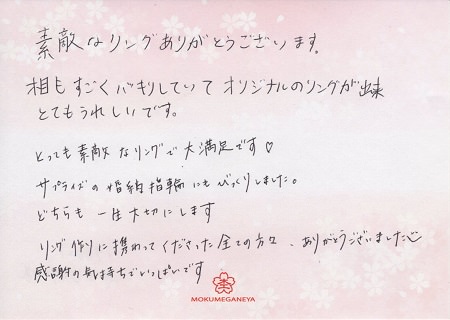 素敵なリングありがとうございます。
相もすごくハキリしていてオリジナルのリングが出来
とてもうれしいです。
とっても素敵なリングで大満足です♡
サプライズの婚約指輪にもびっくりしました。
どちらも一生大切にします
リング作りに携わってくださった全ての方々、ありがとうございました
感謝の気持ちでいっぱいです
MOKUMEGANEYA